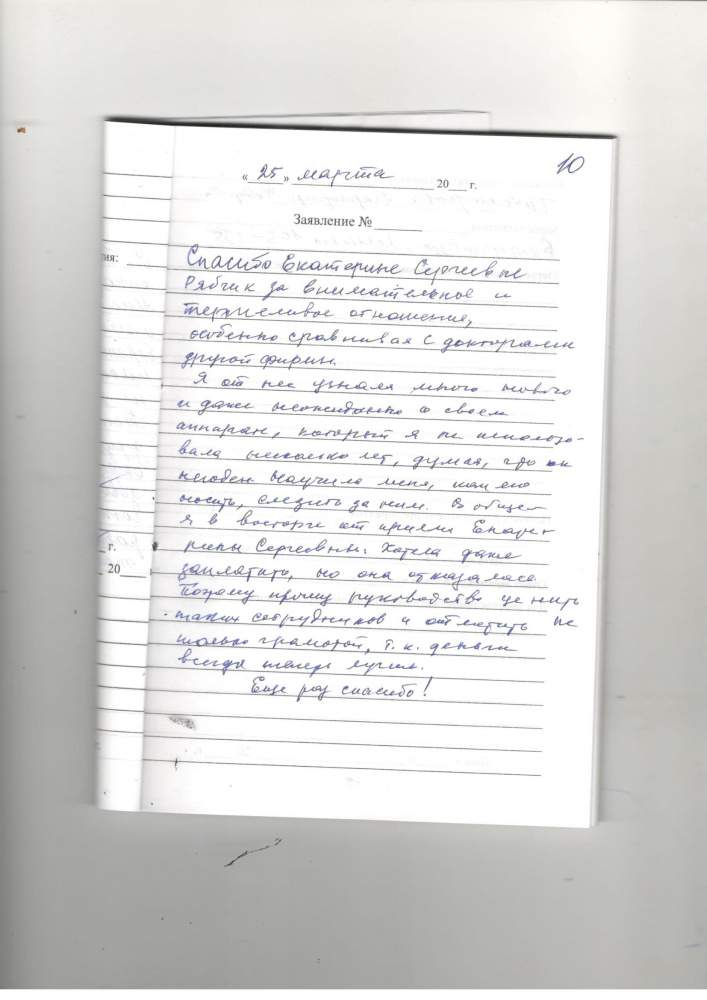 10
« 25 » марта 20___ г.
Заявление №
ия:
Спасибо Екатерине Сергеевне
Рябчик за внимательное и
терпеливое отношение,
особенно сравнивая с докторами
другой фирмы.
Я от нее узнала много нового
и даже неожиданно о своем
аппарате, который я не использо-
вала несколько лет, думая, что он
негоден научила меня, как его
носить, следить за ним. В общем
я в восторге от приема Екате-
рины Сергеевны. Хотела даже
г.
заплатить, но она отказалась.
20
Поэтому прошу руководство ценить
таких сотрудников и отметить не
только грамотой, т.к. деньги
всегда лучше.
Еще раз спасибо!